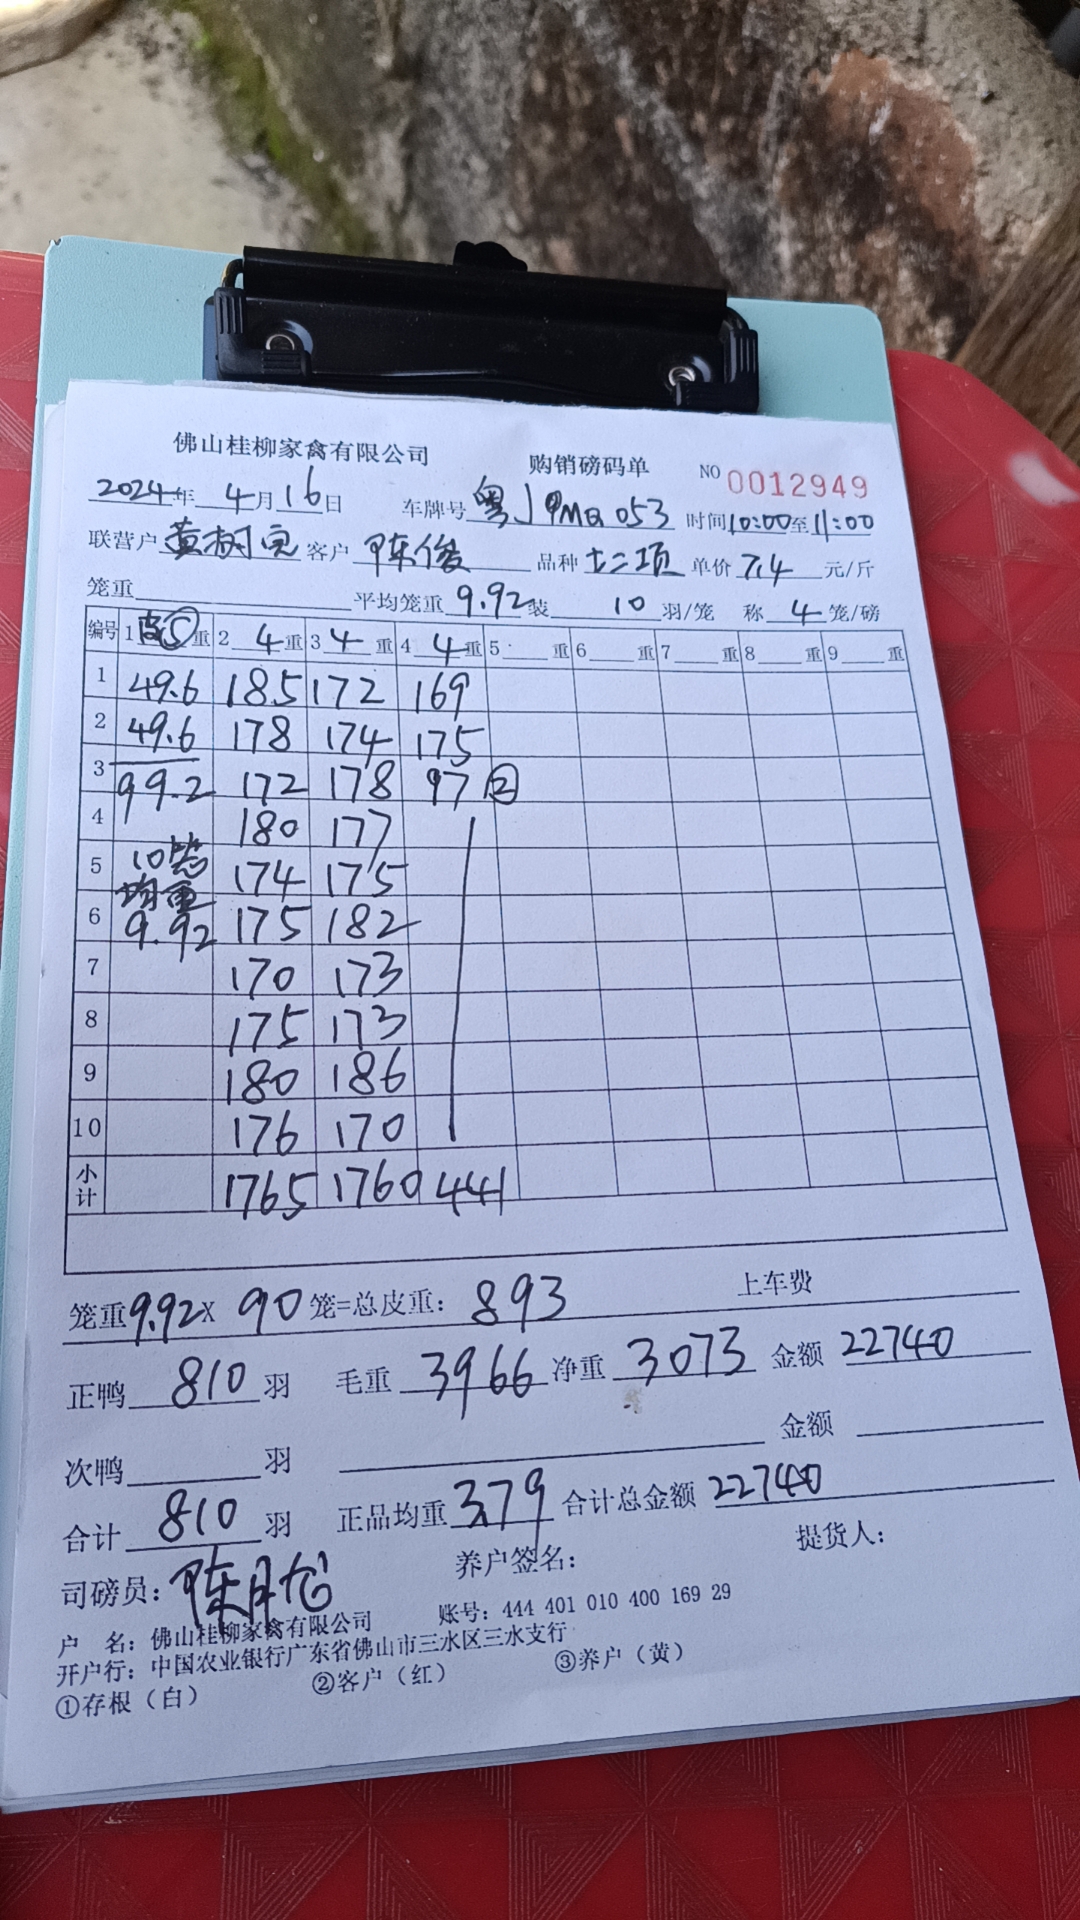 佛山桂柳家禽有限公司 购销磅码单 NO 0012949
2024年 4月16日 车牌号 粤J 053 时间10:00至11:00
联营户 黄树 客户 陈俊 品种 单价 7.4 元/斤
笼重 平均笼重 9.92 装 10 羽/笼 称 4 笼/磅
编号 1 皮⑤重 2 4 重 3 4 重 4 4 重 5 重 6 重 7 重 8 重 9 重
1 49.6 185 172 169
2 49.6 178 174 175
3 99.2 172 178 97 ②
4 180 177
5 10笼 174 175
6 均重 9.92 175 182
7 170 173
8 175 173
9 180 186
10 176 170
小计 1765 1760 441
笼重9.92X 90 笼=总皮重: 893 上车费
正鸭 810 羽 毛重 3966 净重 3073 金额 22740
次鸭 羽 金额
合计 810 羽 正品均重 3.79 合计总金额 22740
司磅员: 陈月 养户签名: 提货人:
户 名: 佛山桂柳家禽有限公司 账号: 444 401 010 400 169 29
开户行: 中国农业银行广东省佛山市三水区三水支行
①存根(白) ②客户(红) ③养户(黄)